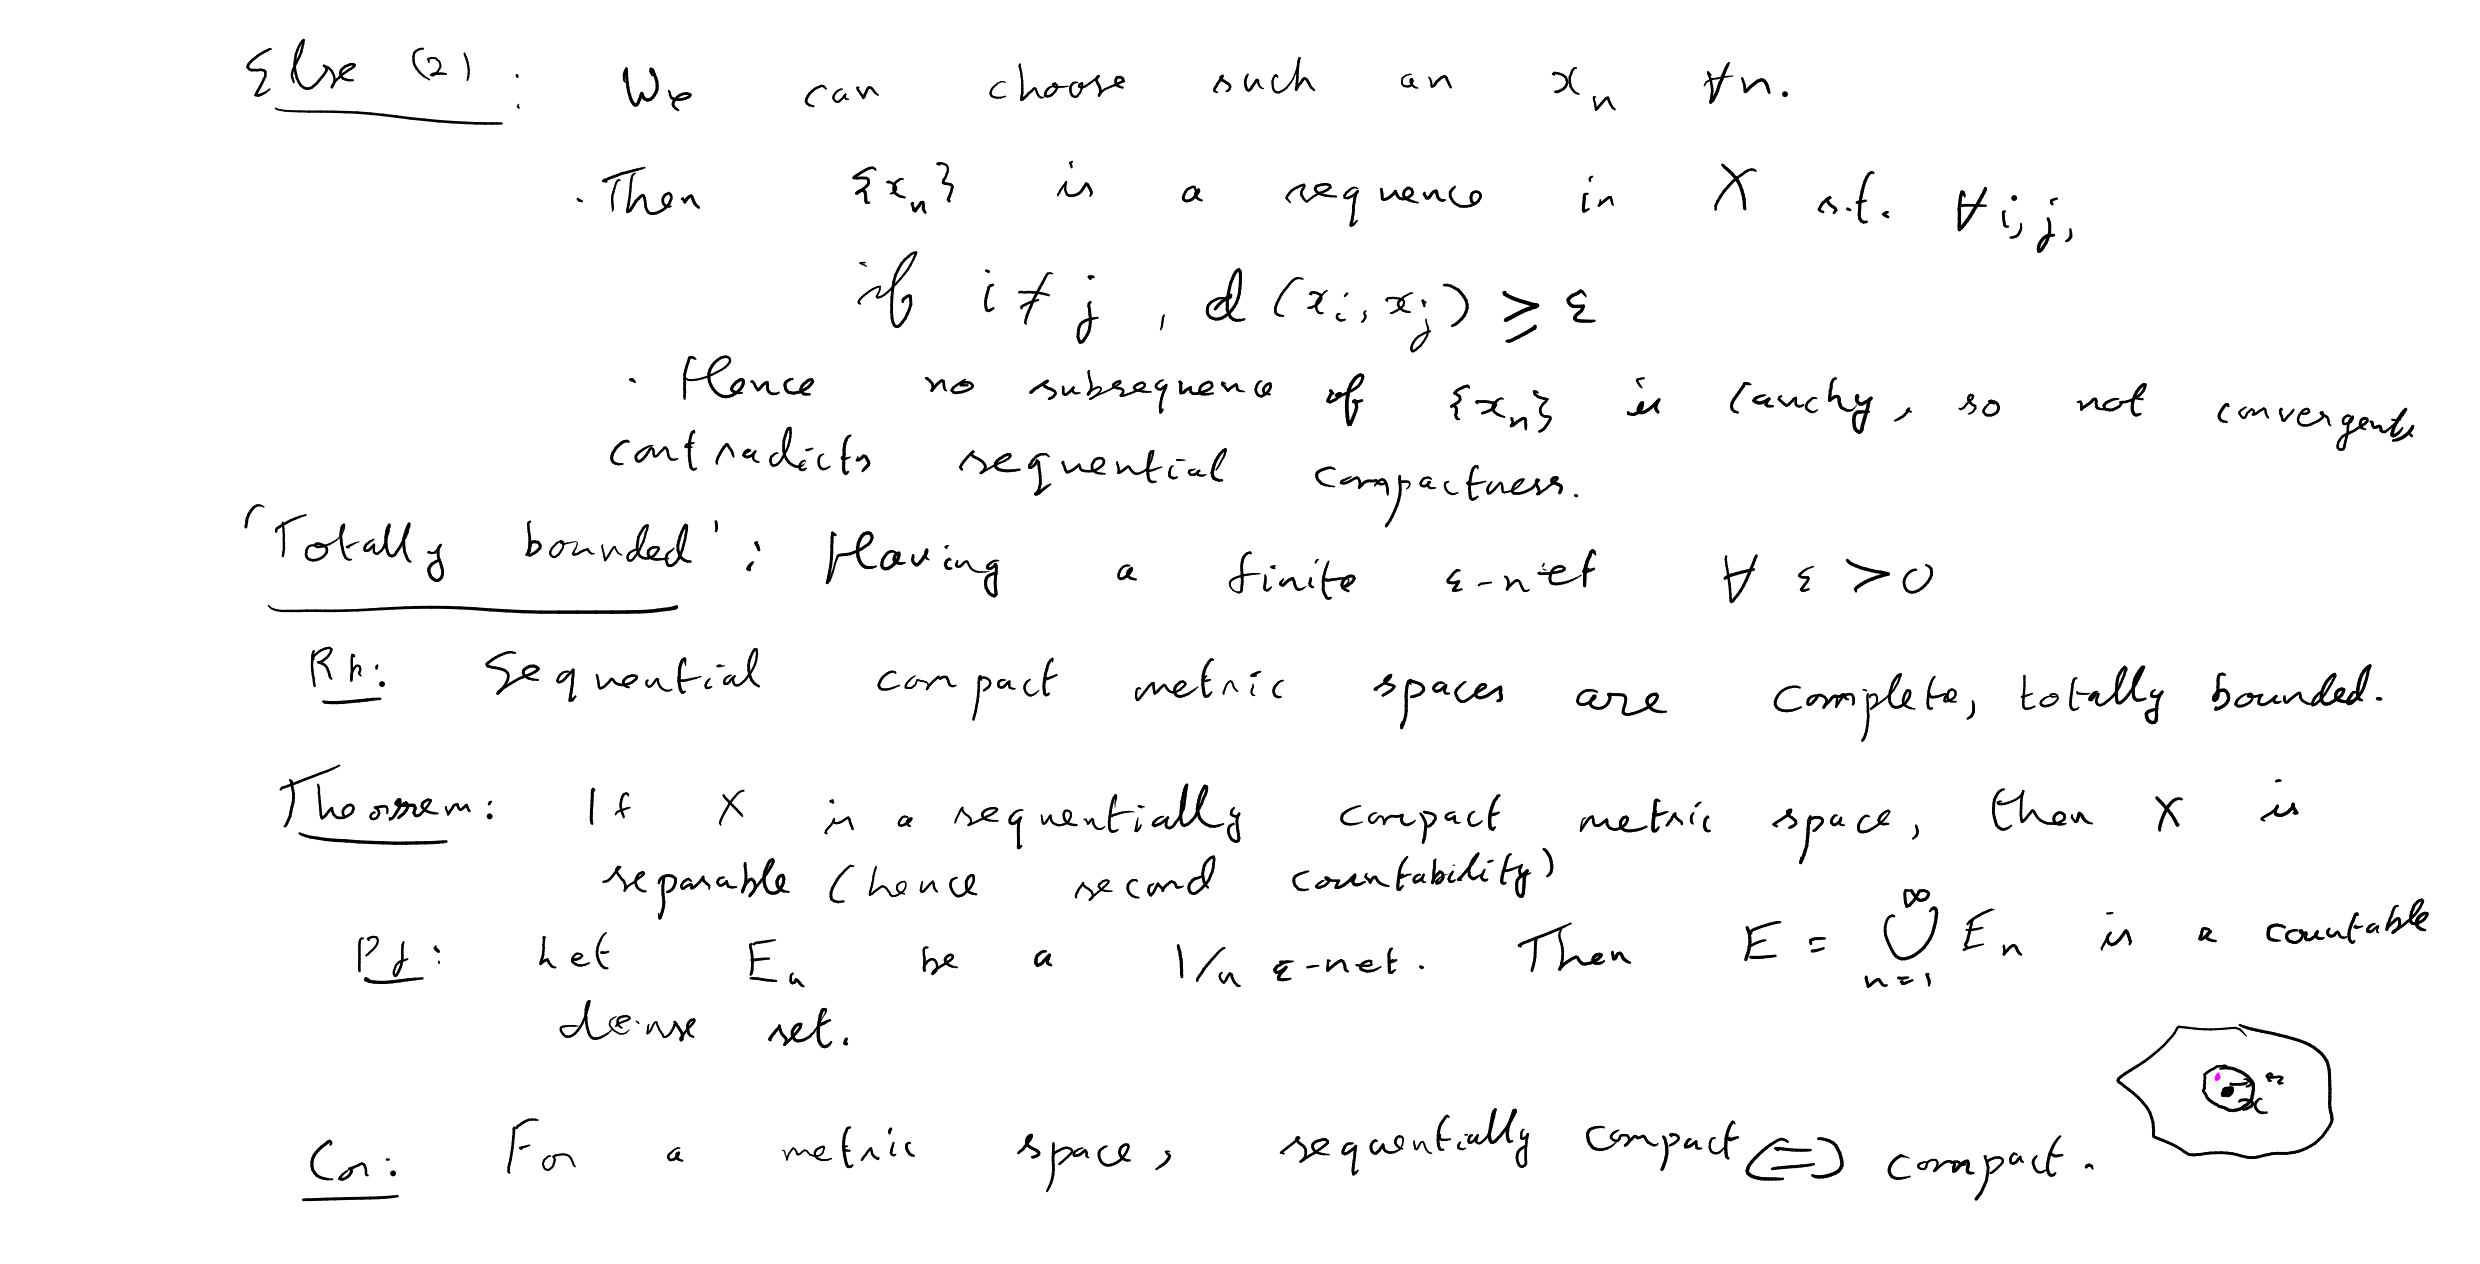 Else (2): We can choose such an xₙ ∀n.
· Then {xₙ} is a sequence in X s.t. ∀ i, j,
if i ≠ j, d(xᵢ, xⱼ) ⩾ ε
· Hence no subsequence of {xₙ} is Cauchy, so not convergent,
contradicts sequential compactness.
'Totally bounded': Having a finite ε-net ∀ ε > 0
Rk: Sequential compact metric spaces are complete, totally bounded.
Theorem: If X is a sequentially compact metric space, then X is
separable (hence second countability)
Pf: Let Eₙ be a 1/n ε-net. Then E = ∞⋃n=1 Eₙ is a countable
dense set.
x
Cor: For a metric space, sequentially compact ⟺ compact.